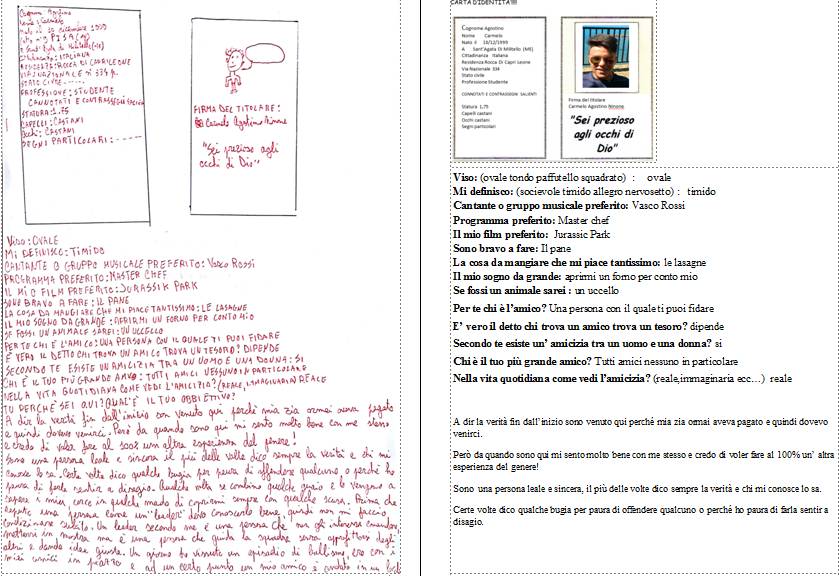 Cognome Agostino
Nome: Carmelo
Nato il 10 dicembre 1999
CITTADINANZA: ITALIANA
RESIDENZA: ROCCA DI CAPRILEONE
VIA: NAZIONALE n 334
STATO CIVILE -----
PROFESSIONE: STUDENTE
CONNOTATI E CONTRASSEGNI SALIENTI
STATURA: 1.75
CAPELLI: CASTANI
OCCHI: CASTANI
SEGNI PARTICOLARI: -----
FIRMA DEL TITOLARE:
Carmelo Agostino Ninone
"Sei prezioso agli
occhi di Dio"
VISO: OVALE
MI DEFINISCO: TIMIDO
CANTANTE O GRUPPO MUSICALE PREFERITO: VASCO ROSSI
PROGRAMMA PREFERITO: MASTER CHEF
IL MIO FILM PREFERITO: JURASSIK PARK
SONO BRAVO A FARE: IL PANE
LA COSA DA MANGIARE CHE MI PIACE TANTISSIMO: LE LASAGNE
IL MIO SOGNO DA GRANDE: APRIRMI UN FORNO PER CONTO MIO
SE FOSSI UN ANIMALE SAREI: UN UCCELLO
PER TE CHI È L'AMICO: UNA PERSONA CON IL QUALE TI PUOI FIDARE
È VERO IL DETTO CHI TROVA UN AMICO TROVA UN TESORO? DIPENDE
SECONDO TE ESISTE UN AMICIZIA TRA UN UOMO E UNA DONNA: SI
CHI È IL TUO PIÙ GRANDE AMICO: TUTTI AMICI NESSUNO IN PARTICOLARE
NELLA VITA QUOTIDIANA COME VEDI L'AMICIZIA? (REALE, IMMAGINARIA) REALE
TU PERCHÈ SEI QUI? QUAL'È IL TUO OBBIETTIVO?
A dir la verità fin dall'inizio son venuto qui perchè mia zia ormai aveva pagato
e quindi dovevo venirci. Però da quando sono qui mi sento molto bene con me stesso
e credo di voler fare al 100% una altra esperienza del genere!
Sono una persona leale e sincera il più delle volte dico sempre la verità e chi mi
conosce lo sa. Certe volte dico qualche bugia per paura di offendere qualcuno o perchè ho
paura di farla sentire a disagio. Qualche volta se combino qualche guaio e lo vengono a
sapere i miei cerco in qualche modo di coprirmi sempre con qualche scusa. Prima che
reputo una persona come un "leader" devo conoscerlo bene, quindi non mi faccio
condizionare subito. Un leader secondo me è una persona che non gli interessa comandare,
mettersi in mostra ma è una persona che guida la squadra senza approfittare degli
altri e dando idee giuste. Un giorno ho vissuto un episodio di bullismo, ero con i
miei amici in piazza e ad un certo punto un mio amico è andato in un
CARTA D'IDENTITA'!!!
Cognome Agostino
Nome Carmelo
Nato il 10/12/1999
A Sant'Agata Di Militello (ME)
Cittadinanza Italiana
Residenza Rocca Di Capri Leone
Via Nazionale 334
Stato civile
Professione Studente
CONNOTATI E CONTRASSEGNI SALIENTI
Statura 1,75
Capelli castani
Occhi castani
Segni particolari
Firma del titolare
Carmelo Agostino Ninone
"Sei prezioso
agli occhi di
Dio"
Viso: (ovale tondo paffutello squadrato) : ovale
Mi definisco: (socievole timido allegro nervosetto) : timido
Cantante o gruppo musicale preferito: Vasco Rossi
Programma preferito: Master chef
Il mio film preferito: Jurassic Park
Sono bravo a fare: Il pane
La cosa da mangiare che mi piace tantissimo: le lasagne
Il mio sogno da grande: aprirmi un forno per conto mio
Se fossi un animale sarei : un uccello
Per te chi è l'amico? Una persona con il quale ti puoi fidare
E' vero il detto chi trova un amico trova un tesoro? dipende
Secondo te esiste un' amicizia tra un uomo e una donna? si
Chi è il tuo più grande amico? Tutti amici nessuno in particolare
Nella vita quotidiana come vedi l'amicizia? (reale,immaginaria ecc...) reale
A dir la verità fin dall'inizio sono venuto qui perchè mia zia ormai aveva pagato e quindi dovevo
venirci.
Però da quando sono qui mi sento molto bene con me stesso e credo di voler fare al 100% un' altra
esperienza del genere!
Sono una persona leale e sincera, il più delle volte dico sempre la verità e chi mi conosce lo sa.
Certe volte dico qualche bugia per paura di offendere qualcuno o perchè ho paura di farla sentir a
disagio.